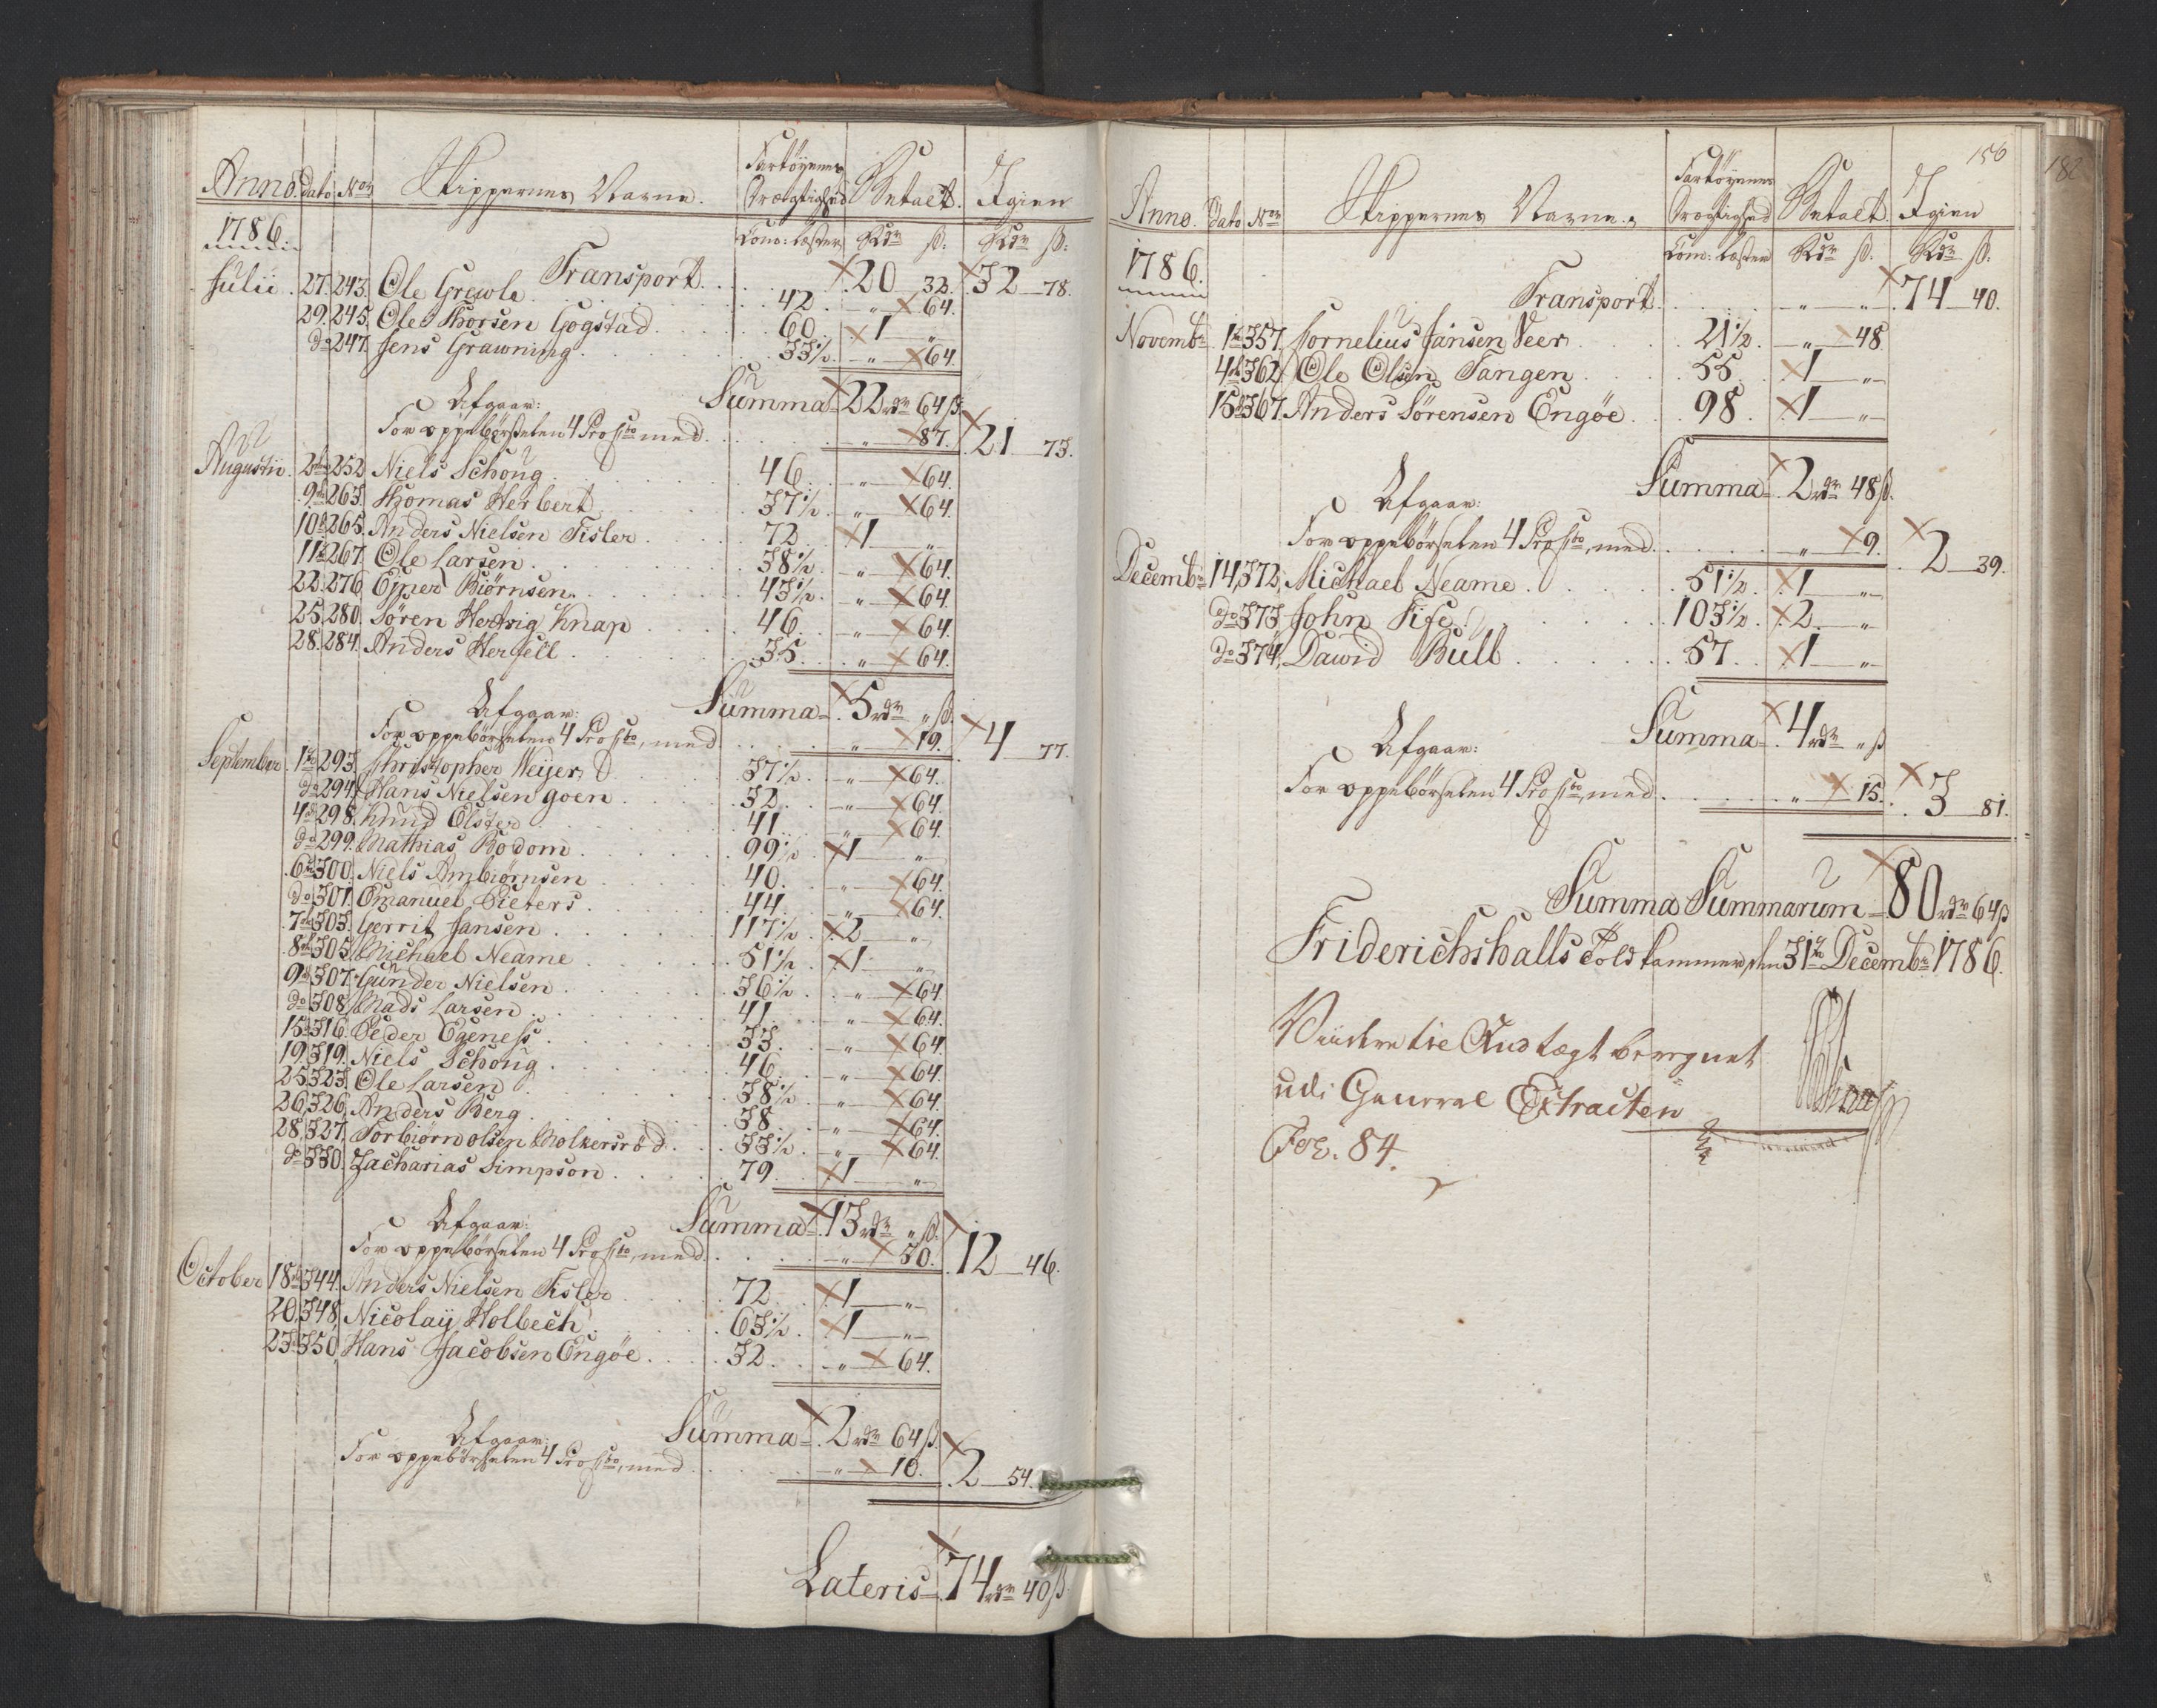 Anno. Dato Nor Skippernes Navne. Fartøyernes Drægtighed Betalt. Igien
1786. Com: Læster Rdr ß: Rdr ß:
Transport. 20 32. 32 78.
Julii. 27. 243. Ole Grewle 42 " 64.
29. 245. Ole Thorsen Gogstad 60. 1 "
do 247. Jens Grawning 33½. " 64.
Summa 22 rdr 64 ß.
Afgaar:
For oppebørselen 4 Procto med " 87. 21 73.
Augustii. 2den 252. Niels Schoug 46. " 64.
9de 263. Thomas Herbert 37½. " 64.
10de 265. Anders Nielsen Fisler 72. 1 "
11te 267. Ole Larsen 38½. " 64.
22. 276. Ejner Biørnsen. 43½. " 64.
25. 280. Søren Hertvig Knap 46 " 64.
28. 284. Anders Herfell 35. " 64.
Summa 5 rdr " ß.
Afgaar:
For oppebørselen 4 Procto, med " 19. 4 77.
September. 1te 293. Christopher Weyer 37½. " 64.
do 294. Hans Nielsen Goen 32. " 64.
4de 298. Knud Elster 41. " 64.
do 299. Mathias Bodom 99½. 1 "
6te 300. Niels Ambiørnsen 40. " 64.
do 301. Emanuel Pieters 44. " 64.
7de 303. Gerrit Jansen 117½. 2 "
8de 305. Michael Neame 51½. 1 "
9de 307. Gunder Nielsen 36½. " 64.
do 308. Mads Larsen 41. " 64.
15de 316. Peder Egeness 33. " 64.
19. 319. Niels Schoug 46. " 64.
25. 323. Ole Larsen 38½. " 64.
26. 326. Anders Berg 38. " 64.
28. 327. Torbiørn olsen Molkersrød 33½. " 64.
do 330. Zacharias Simpson 79. 1 "
Summa 13 rdr " ß.
Afgaar:
For oppebørselen 4 Procto, med " 50. 12 46.
October 18de 344. Anders Nielsen Fisler 72. 1 "
20. 348. Nicolay Holbech 63½. 1 "
23. 350. Hans Jacobsen Engøe 32. " 64.
Summa 2 rdr 64 ß.
Afgaar:
For oppebørselen 4 Procto, med " 10. 2 54.
Lateris 74 rdr 40 ß
156
182
Anno. Dato Nor Skippernes Navne. Fartøyernes Drægtighed Betalt. Igien
1786. Com: Læster Rdr ß. Rdr ß:
Transport. " " 74 40.
Novembr. 1te 357. Cornelius Jansen Veer 21½. " 48.
4de 362. Ole Olsen Tangen 55. 1 "
15de 367. Anders Sørensen Engøe 98. 1 "
Summa 2 rdr 48 ß.
Afgaar:
For oppebørselen 4 Procto, med " 9. 2 39.
Decembr. 14. 372. Michael Neame 51½. 1 "
do 373. John Fife 103½. 2. "
do 374. Dawid Bull 57. 1 "
Summa 4 rdr " ß
Afgaar:
For oppebørselen 4 Procto, med " 15. 3 81.
Summa Summarum 80 rdr 64 ß
Friderichshalls Toldkammer, den 31te Decembr 1786.
beregnet
udi General Extracten
Fol. 84.